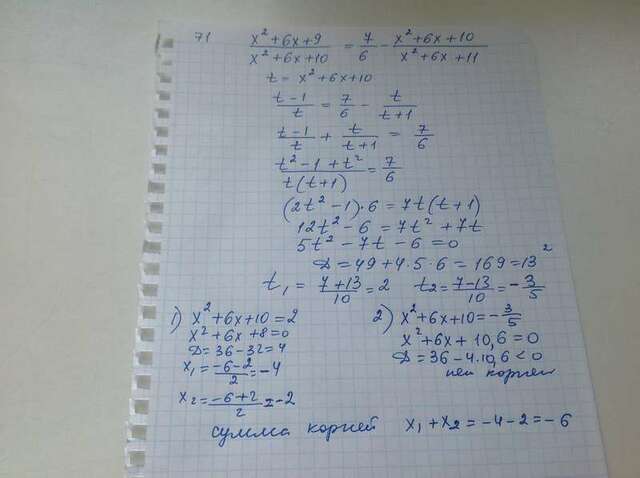 71 (x² + 6x + 9)/(x² + 6x + 10) = 7/6 - (x² + 6x + 10)/(x² + 6x + 11)
t = x² + 6x + 10
(t - 1)/t = 7/6 - t/(t + 1)
(t - 1)/t + t/(t + 1) = 7/6
(t² - 1 + t²)/(t(t + 1)) = 7/6
(2t² - 1)·6 = 7t(t + 1)
12t² - 6 = 7t² + 7t
5t² - 7t - 6 = 0
D = 49 + 4·5·6 = 169 = 13²
t₁ = (7 + 13)/10 = 2 t₂ = (7 - 13)/10 = -3/5
1) x² + 6x + 10 = 2
x² + 6x + 8 = 0
D = 36 - 32 = 4
x₁ = (-6 - 2)/2 = -4
x₂ = (-6 + 2)/2 = -2
2) x² + 6x + 10 = -3/5
x² + 6x + 10,6 = 0
D = 36 - 4·10,6 < 0
нет корней
сумма корней x₁ + x₂ = -4 - 2 = -6